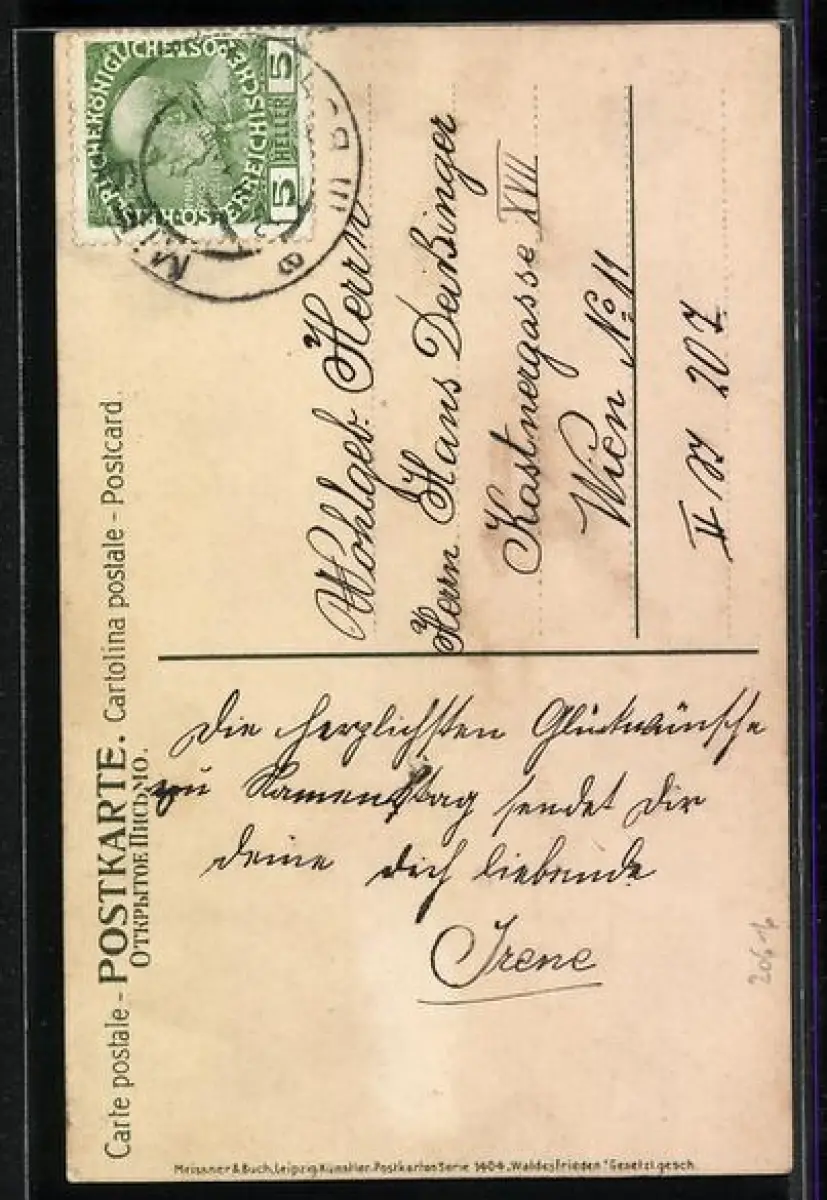 Carte postale - POSTKARTE. Cartolina postale - Postcard.
ОТКРЫТОЕ ПИСЬМО.
5 HELLER 5
III
Wohlgeb. Herrn
Herrn Hans Deißinger
Kastnergasse XVII
Wien No 11
II 207
Die herzlichsten Glückwünsche
zu Namenstag sendet Dir
deine dich liebende
Irene
Meissner & Buch, Leipzig. Künstler-Postkarten Serie 1404. "Waldesfrieden" Gesetzl. gesch.